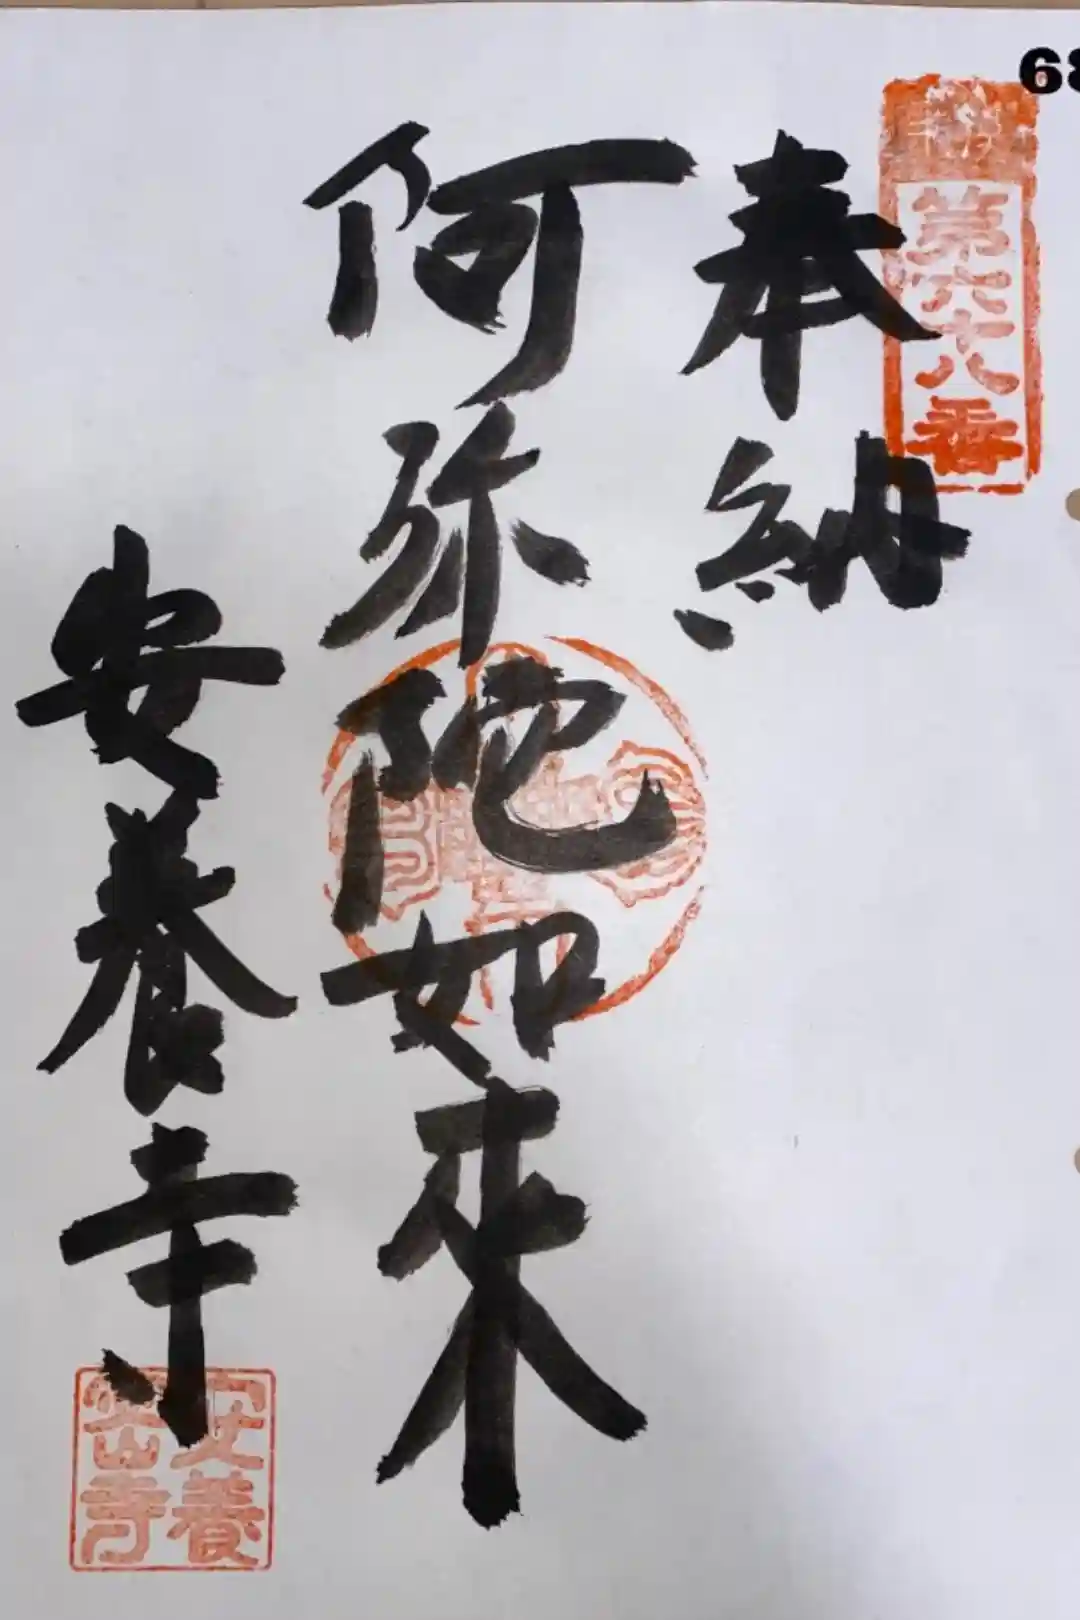 68
第六十八番
奉納
阿弥陀如来
安養寺
安養
密寺